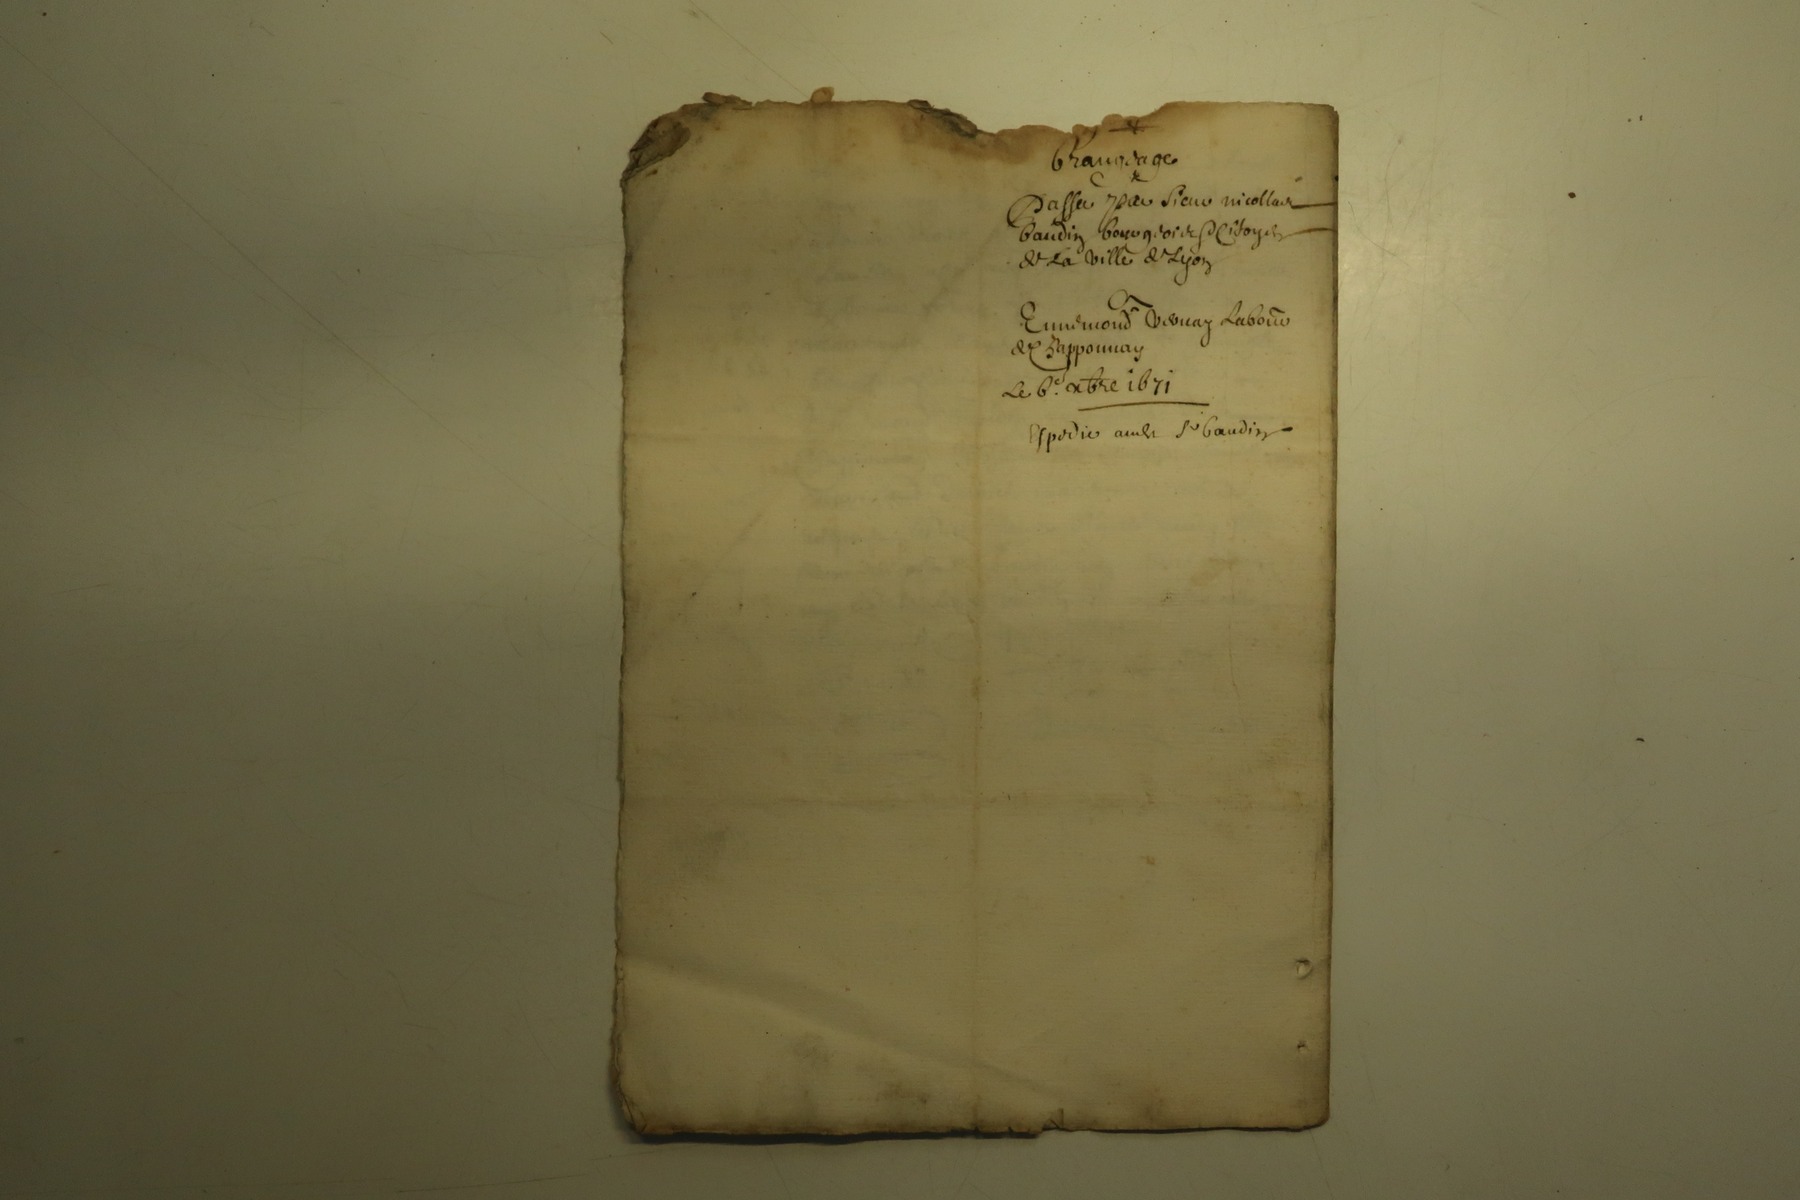 Grangeage
Passé par sieur nicollas
baudin bourgeois & Citoyen
de La ville de Lyon
A
Ennemond vernay Labour
de Chapponnay
Le 6e. xbre 1671
Expedie audt Sr baudin